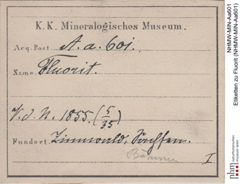 K. K. Mineralogisches Museum.
Acq. Post A. a. 601.
Name Fluorit.
V. d. N. 1855. (5/35)
Fundort Zinnwald, Sachsen.
Böhmen
I
NHMW-MIN-Aa601
Etiketten zu Fluorit (NHMW-MIN-Aa601)
nhm